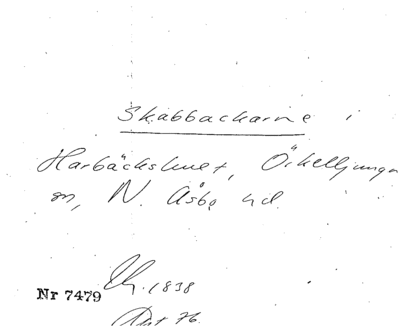 Skabbackarne i
Harbäckshult, Örkelljunga
sn, N. Åsbo hd.
1838
Nr 7479